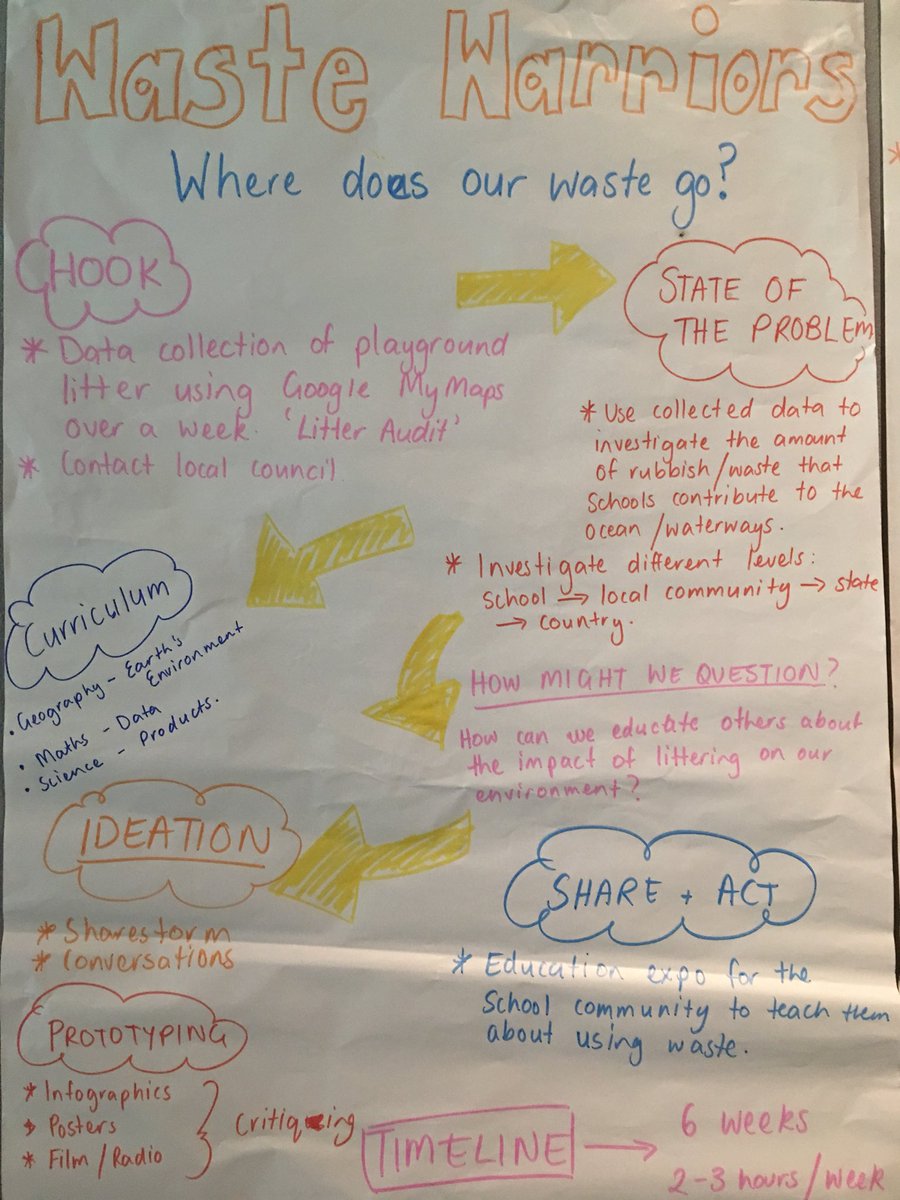 Waste Warriors
Where does our waste go?
HOOK
* Data collection of playground
litter using Google MyMaps
over a week. 'Litter Audit'
* Contact local council
STATE OF
THE PROBLEM
* Use collected data to
investigate the amount
of rubbish/waste that
Schools contribute to the
ocean/waterways.
* Investigate different levels:
school → local community → state
→ country.
Curriculum
• Geography - Earth's
Environment
• Maths - Data
• Science - Products.
HOW MIGHT WE QUESTION?
How can we educate others about
the impact of littering on our
environment?
IDEATION
* Sharestorm
* Conversations
SHARE + ACT
* Education expo for the
School community to teach them
about using waste.
PROTOTYPING
* Infographics
* Posters
* Film/Radio
Critiqueing
TIMELINE → 6 weeks
2-3 hours/week